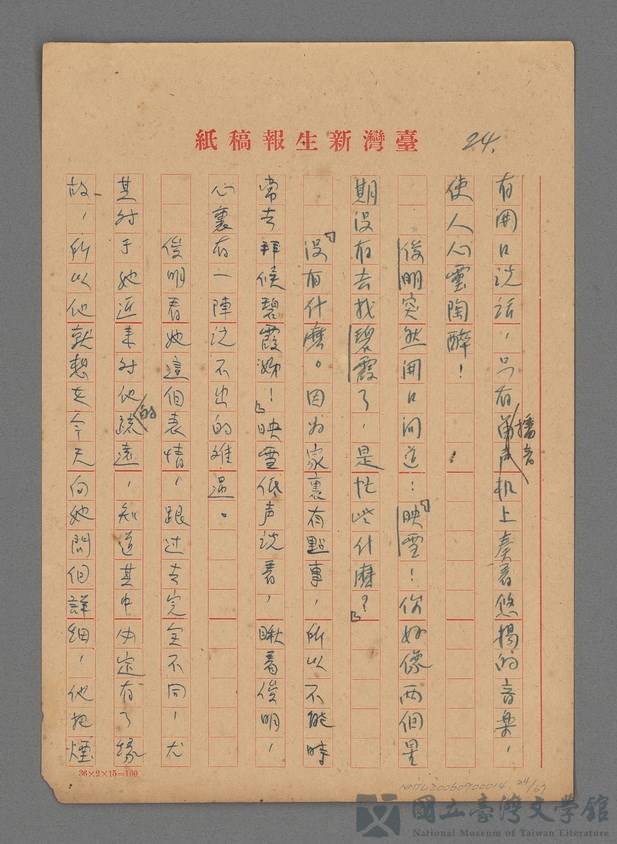 臺灣新生報稿紙
24.
有開口說話，只有播音机上奏着悠揚的音樂，
使人心靈陶醉！
俊明突然開口问道：「映雪！你好像兩個星
期没有去找碧霞了，是忙些什麽？」
「没有什麽。因为家裏有點事，所以不能時
常去拜候碧霞姊！」映雪低声説着，瞅着俊明，
心裏有一陣説不出的难過。
俊明看她這個表情，跟过去完全不同，尤
其对于她近来对他的疏遠，知道其中必定有了缘
故，所以他就想在今天向她問個詳细，他把煙
36×2×15=100
NMTL20060900014 24/67
國立臺灣文学館
National Museum of Taiwan Literature